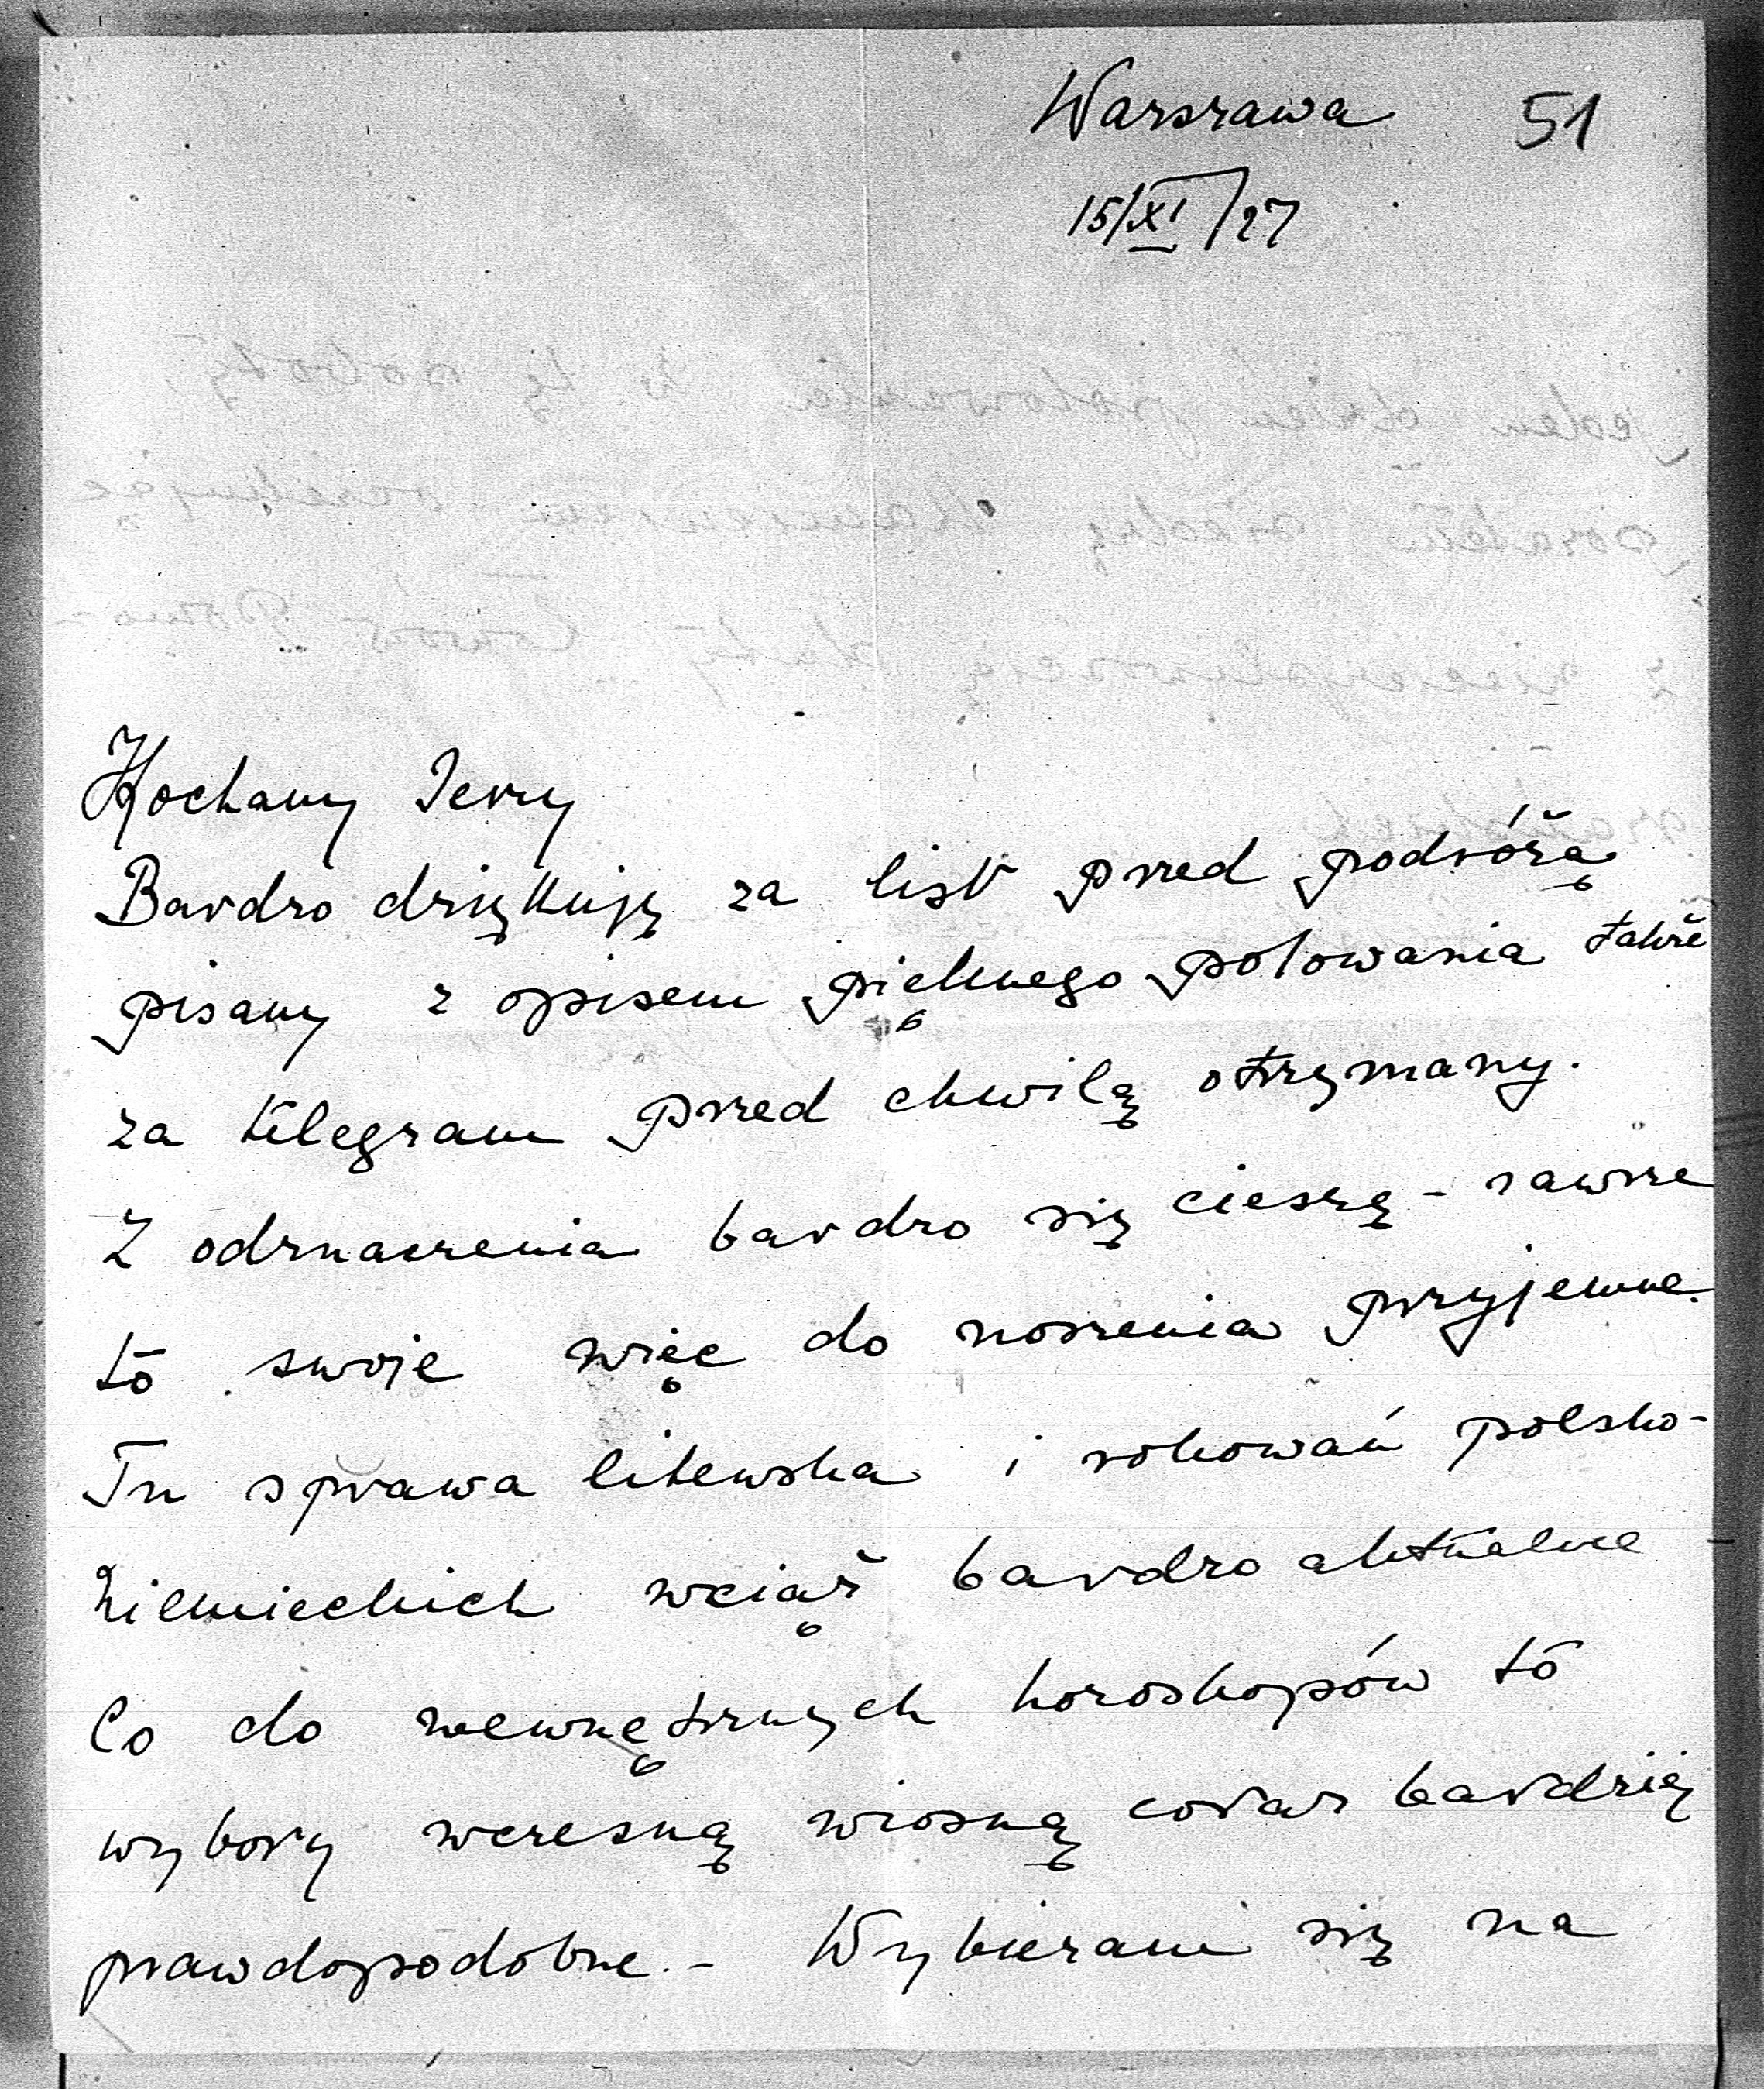 Warszawa 51
15/XI/27
Kochany Jerzy
Bardzo dziękuję za list przed podróżą
pisany z opisem pięknego polowania także
za telegram przed chwilą otrzymany.
Z odznaczenia bardzo się cieszę - zawsze
to swoje więc do noszenia przyjemne.
Tu sprawa litewska i rokowań polsko-
niemieckich wciąż bardzo aktualne -
Co do wewnętrznych horoskopów to
wybory wczesną wiosną coraz bardziej
prawdopodobne. - Wybieram się na